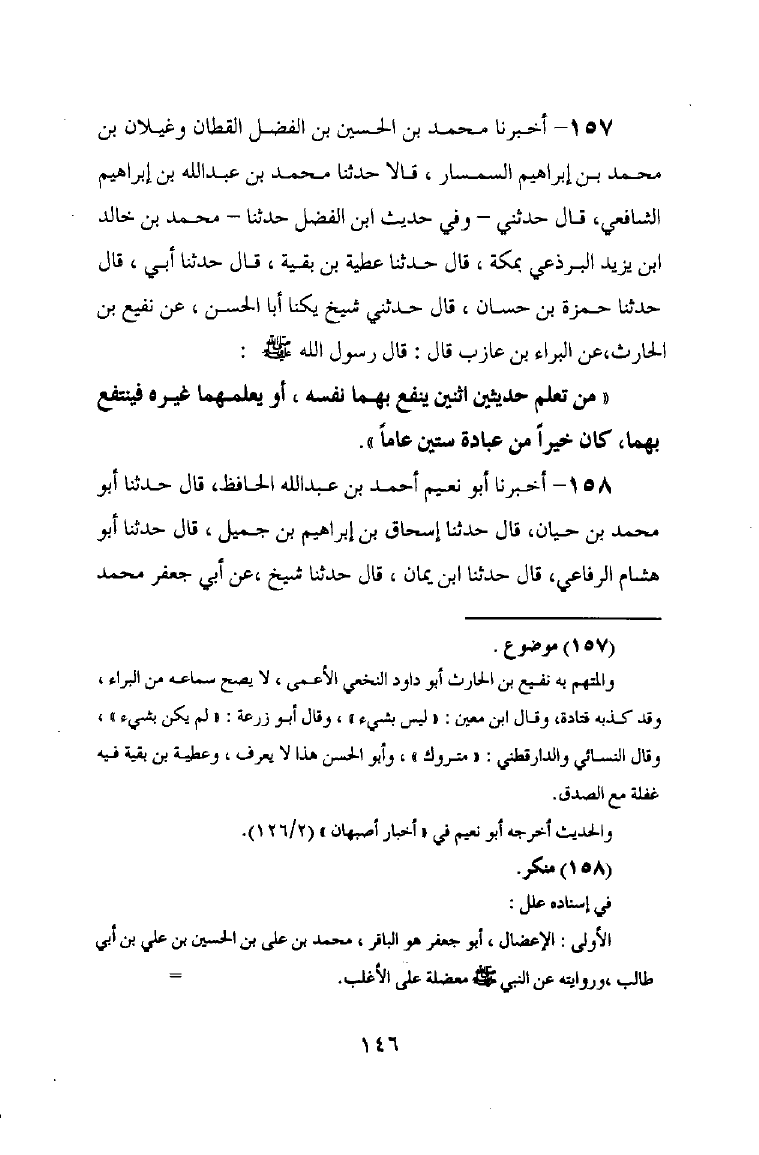 ١٥٧- أخبرنا محمد بن الحسين بن الفضل القطان وغيلان بن
محمد بن إبراهيم السمسار ، قالا حدثنا محمد بن عبدالله بن إبراهيم
الشافعي، قال حدثني - وفي حديث ابن الفضل حدثنا - محمد بن خالد
ابن يزيد البرذعي بمكة ، قال حدثنا عطية بن بقية ، قال حدثنا أبي ، قال
حدثنا حمزة بن حسان ، قال حدثني شيخ يكنا أبا الحسن ، عن نفيع بن
الحارث،عن البراء بن عازب قال : قال رسول الله ﷺ :
« من تعلم حديثين اثنين ينفع بهما نفسه ، أو يعلمهما غيره فينتفع
بهما، كان خيراً من عبادة ستين عاماً ».
١٥٨- أخبرنا أبو نعيم أحمد بن عبدالله الحافظ، قال حدثنا أبو
محمد بن حيان، قال حدثنا إسحاق بن إبراهيم بن جميل ، قال حدثنا أبو
هشام الرفاعي، قال حدثنا ابن يمان ، قال حدثنا شيخ ،عن أبي جعفر محمد
(١٥٧) موضوع .
والمتهم به نفيع بن الحارث أبو داود النخعي الأعمى ، لا يصح سماعه من البراء ،
وقد كذبه قتادة، وقال ابن معين : « ليس بشيء » ، وقال أبو زرعة : « لم يكن بشيء » ،
وقال النسائي والدارقطني : « متروك » ، وأبو الحسن هذا لا يعرف ، وعطية بن بقية فيه
غفلة مع الصدق.
والحديث أخرجه أبو نعيم في « أخبار أصبهان » (١٢٦/٢).
(١٥٨) منكر.
في إسناده علل :
الأولى : الإعضال ، أبو جعفر هو الباقر ، محمد بن على بن الحسين بن علي بن أبي
طالب ،وروايته عن النبي ﷺ معضلة على الأغلب. =
١٤٦